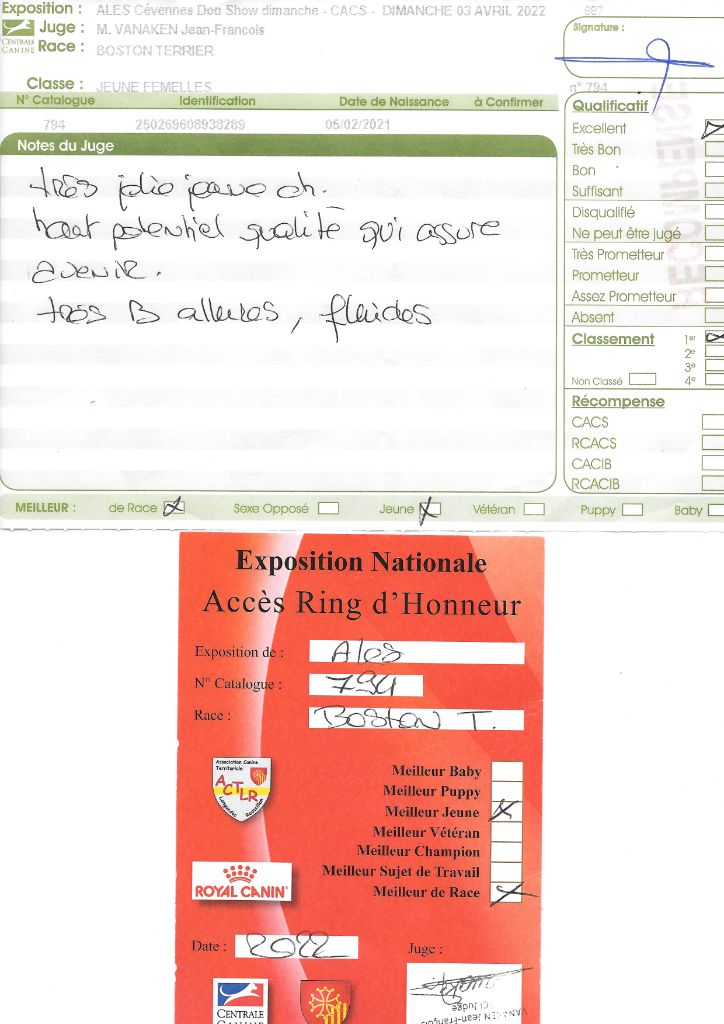 Exposition : ALES Cévennes Dog Show dimanche - CACS - DIMANCHE 03 AVRIL 2022 687
Juge : M. VANAKEN Jean-Francois
Signature :
CENTRALE CANINE
Race : BOSTON TERRIER
Classe : JEUNE FEMELLES
n° 794
N° Catalogue Identification Date de Naissance à Confirmer
794 250269608938289 05/02/2021
Notes du Juge
très jolie jeune ch.
haut potentiel qualité qui assure
avenir.
très B allures, fluides
Qualificatif
Excellent
Très Bon
Bon
Suffisant
Disqualifié
Ne peut être jugé
Très Prometteur
Prometteur
Assez Prometteur
Absent
RECOMPENSE
Classement 1er
2e
3e
Non Classé 4e
Récompense
CACS
RCACS
CACIB
RCACIB
MEILLEUR : de Race Sexe Opposé Jeune Vétéran Puppy Baby
Exposition Nationale
Accès Ring d'Honneur
Exposition de : Ales
N° Catalogue : 794
Race : Boston T.
Association Canine
Territoriale
ACTLR
Languedoc Roussillon
Meilleur Baby
Meilleur Puppy
Meilleur Jeune
Meilleur Vétéran
Meilleur Champion
Meilleur Sujet de Travail
Meilleur de Race
ROYAL CANIN
Date : 2022
Juge :
VANAKEN Jean-François
CI Judge
CENTRALE
CANINE